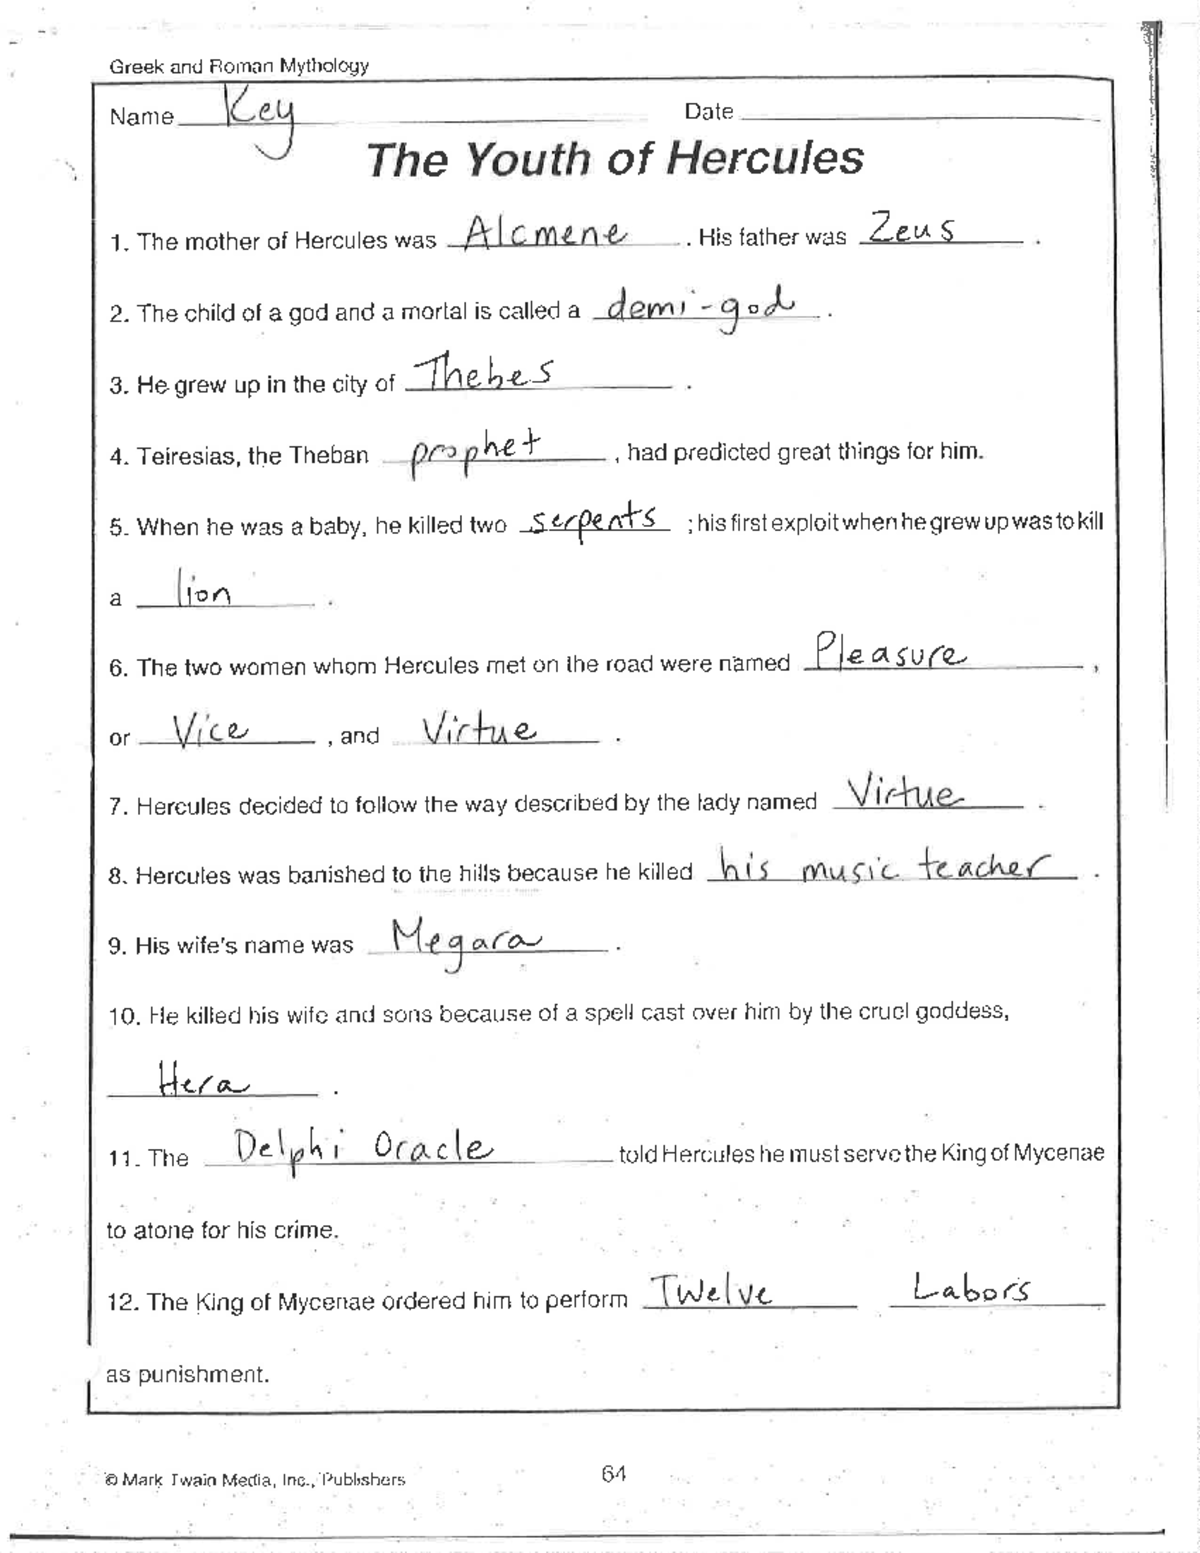 Greek and Roman Mythology
Name Key Date
The Youth of Hercules
1. The mother of Hercules was Alcmene . His father was Zeus .
2. The child of a god and a mortal is called a demi-god .
3. He grew up in the city of Thebes .
4. Teiresias, the Theban prophet , had predicted great things for him.
5. When he was a baby, he killed two serpents ; his first exploit when he grew up was to kill
a lion .
6. The two women whom Hercules met on the road were named Pleasure ,
or Vice , and Virtue .
7. Hercules decided to follow the way described by the lady named Virtue .
8. Hercules was banished to the hills because he killed his music teacher .
9. His wife's name was Megara .
10. He killed his wife and sons because of a spell cast over him by the cruel goddess,
Hera .
11. The Delphi Oracle told Hercules he must serve the King of Mycenae
to atone for his crime.
12. The King of Mycenae ordered him to perform Twelve Labors
as punishment.
© Mark Twain Media, Inc., Publishers 64